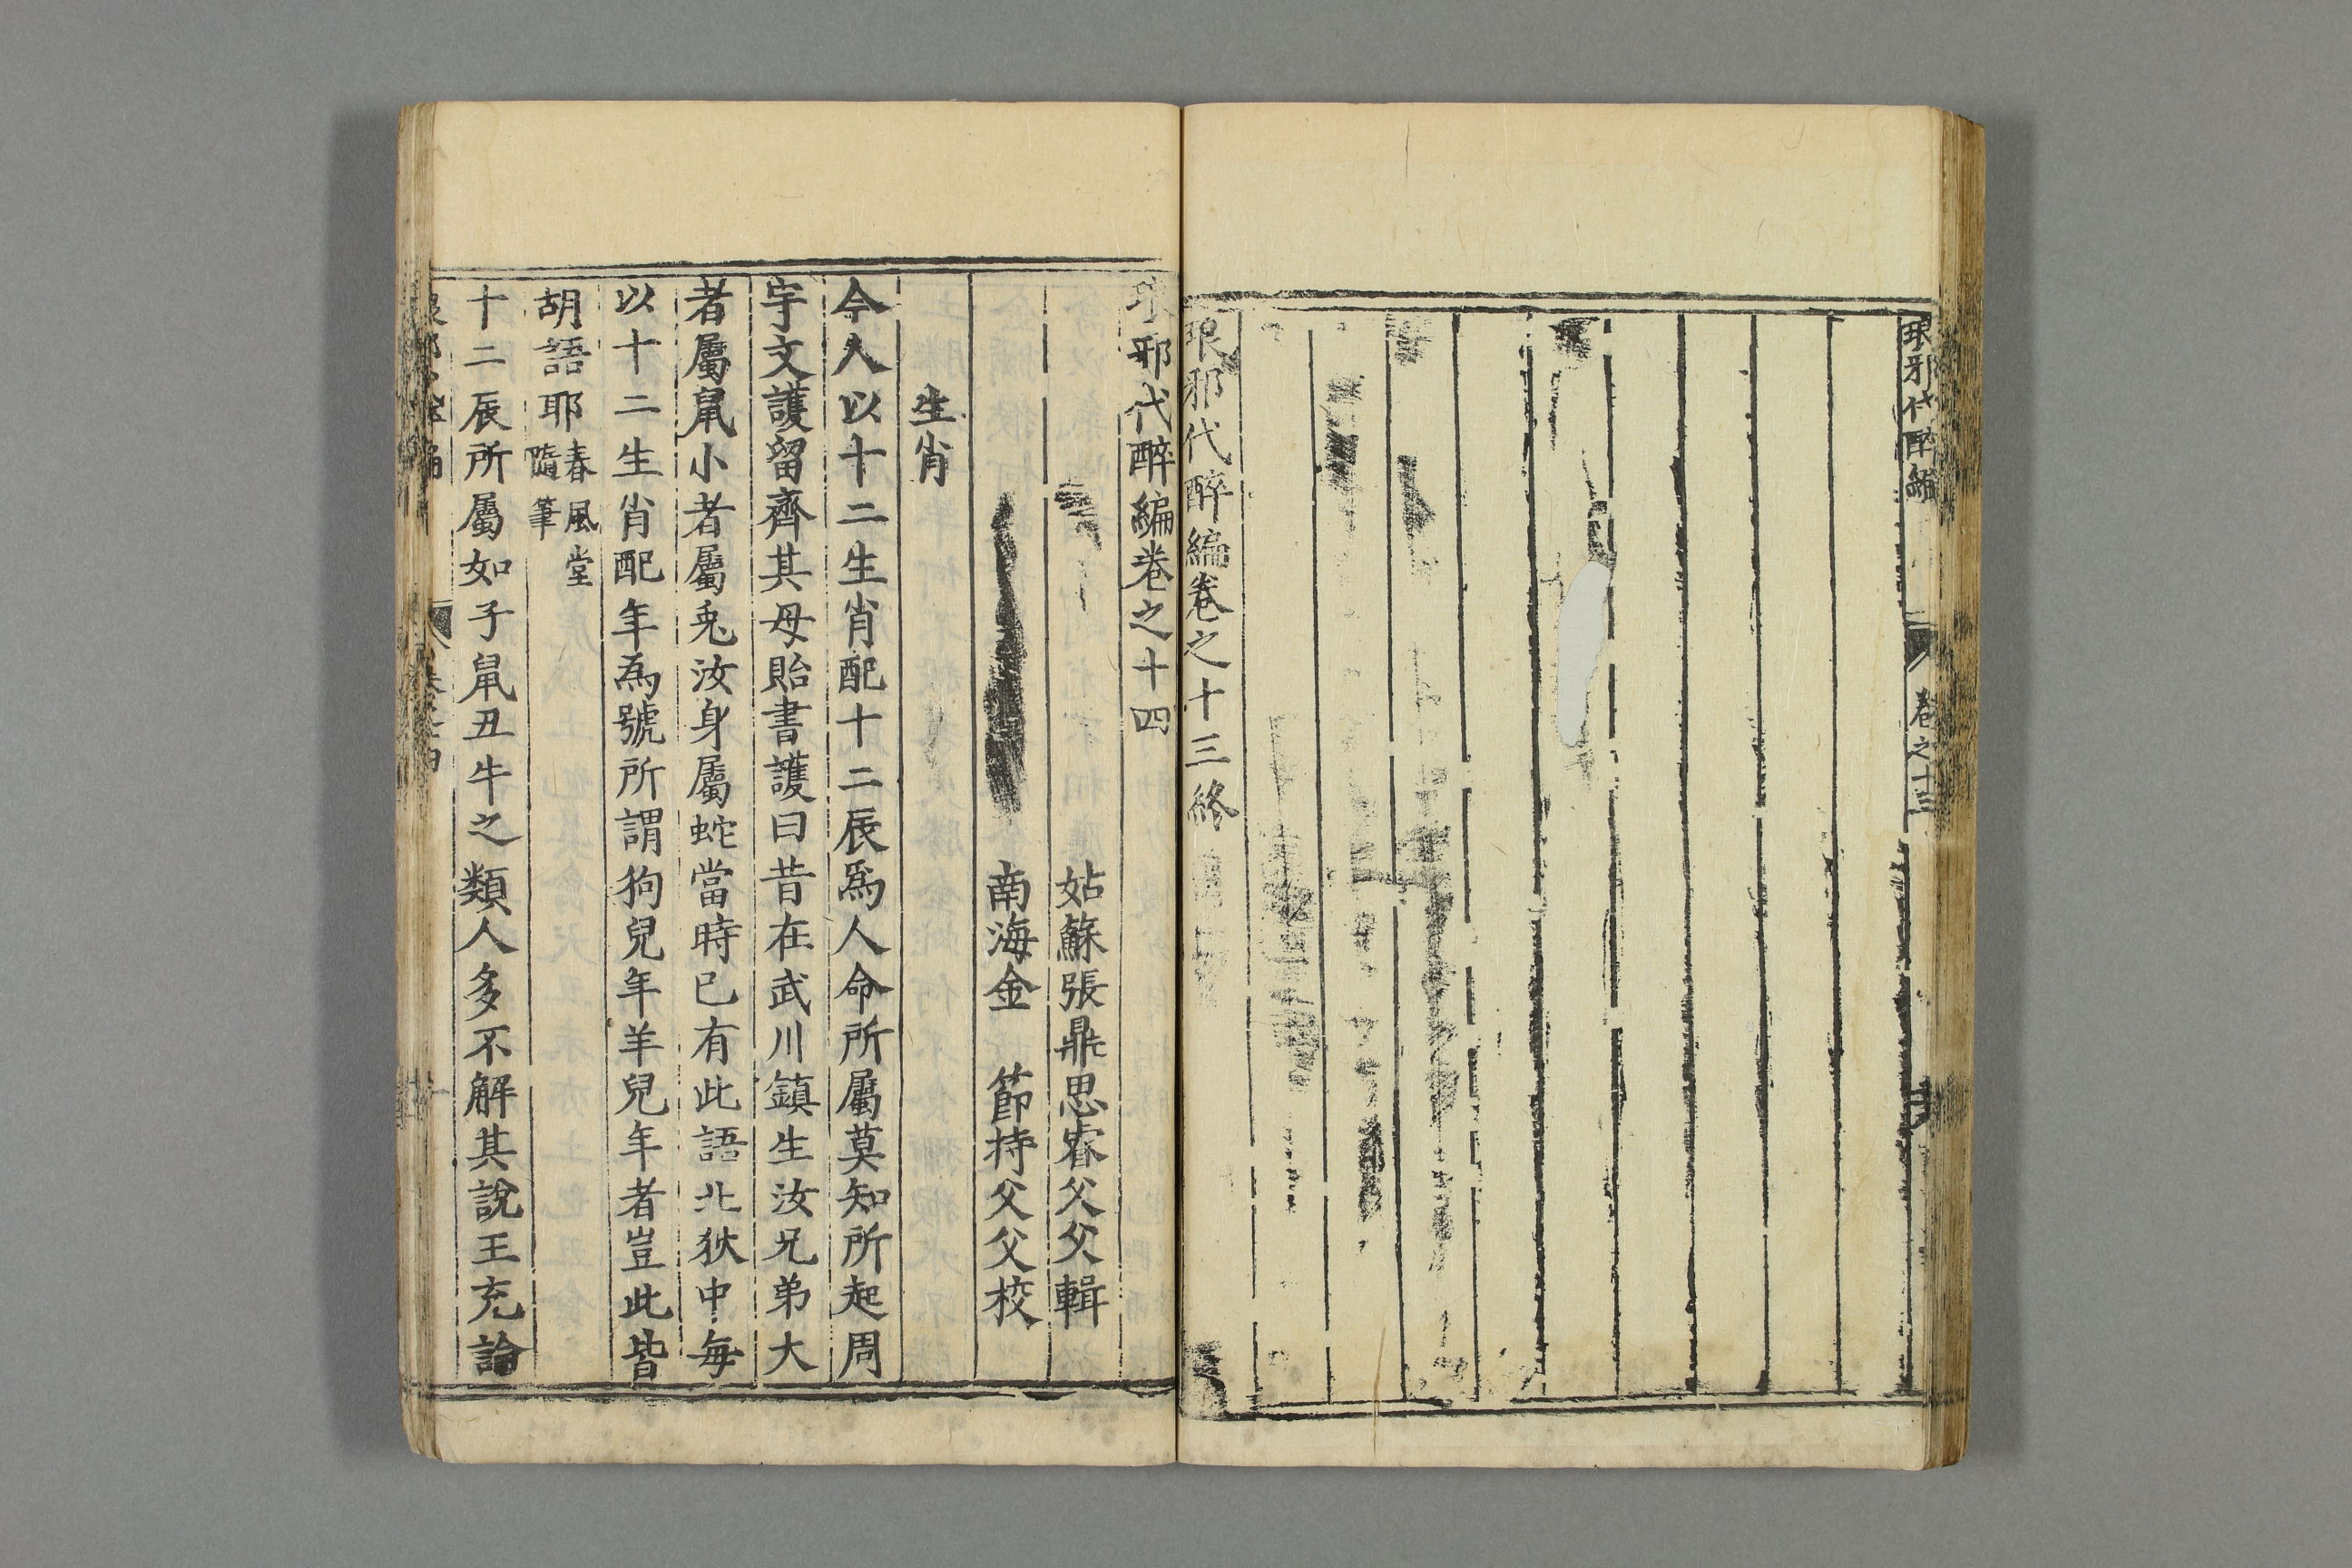 琅邪代醉編
卷之十三
琅邪代醉編卷之十三終
琅邪代醉編卷之十四
姑蘇張鼎思睿父父輯
南海金 節持父父校
生肖
今人以十二生肖配十二辰爲人命所屬莫知所起周
宇文護留齊其母貽書護曰昔在武川鎮生汝兄弟大
者屬鼠小者屬兎汝身屬蛇當時已有此語北狄中每
以十二生肖配年爲號所謂狗兒年羊兒年者豈此皆
胡語耶
春風堂
隨筆
十二辰所屬如子鼠丑牛之類人多不解其說王充論